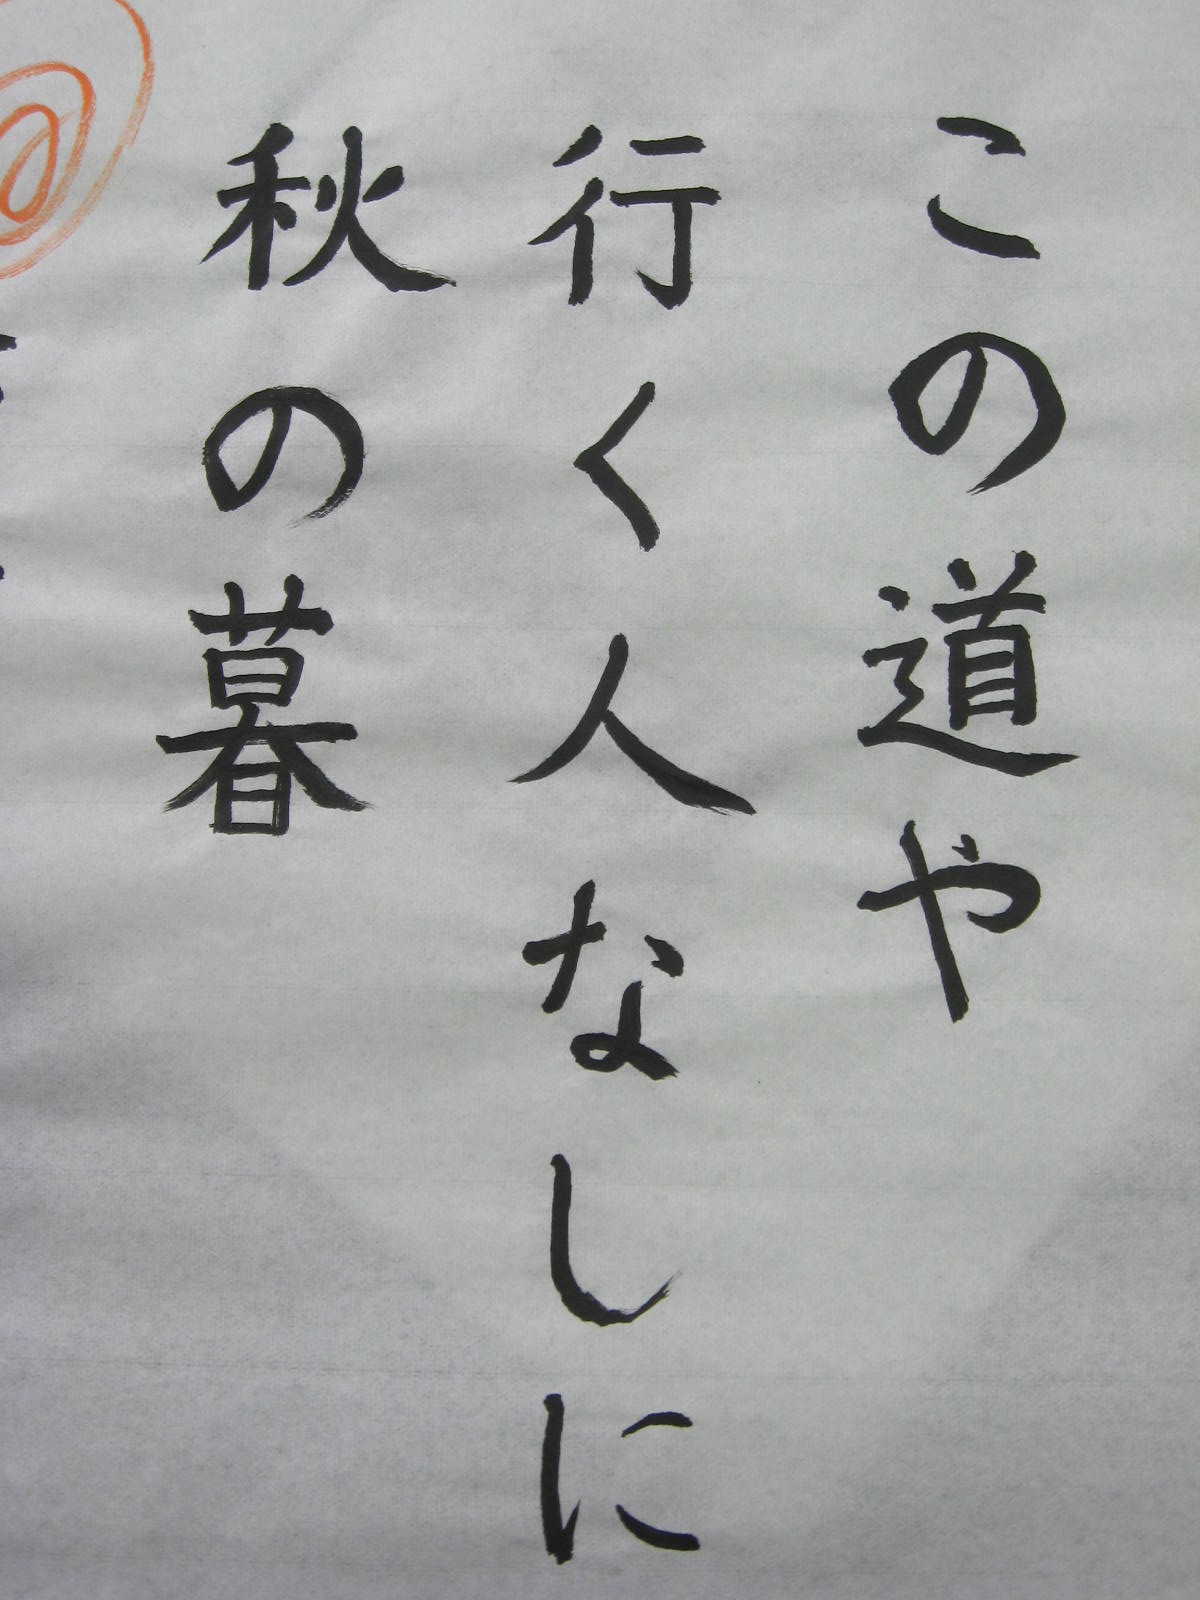 この道や
行く人なしに
秋の暮